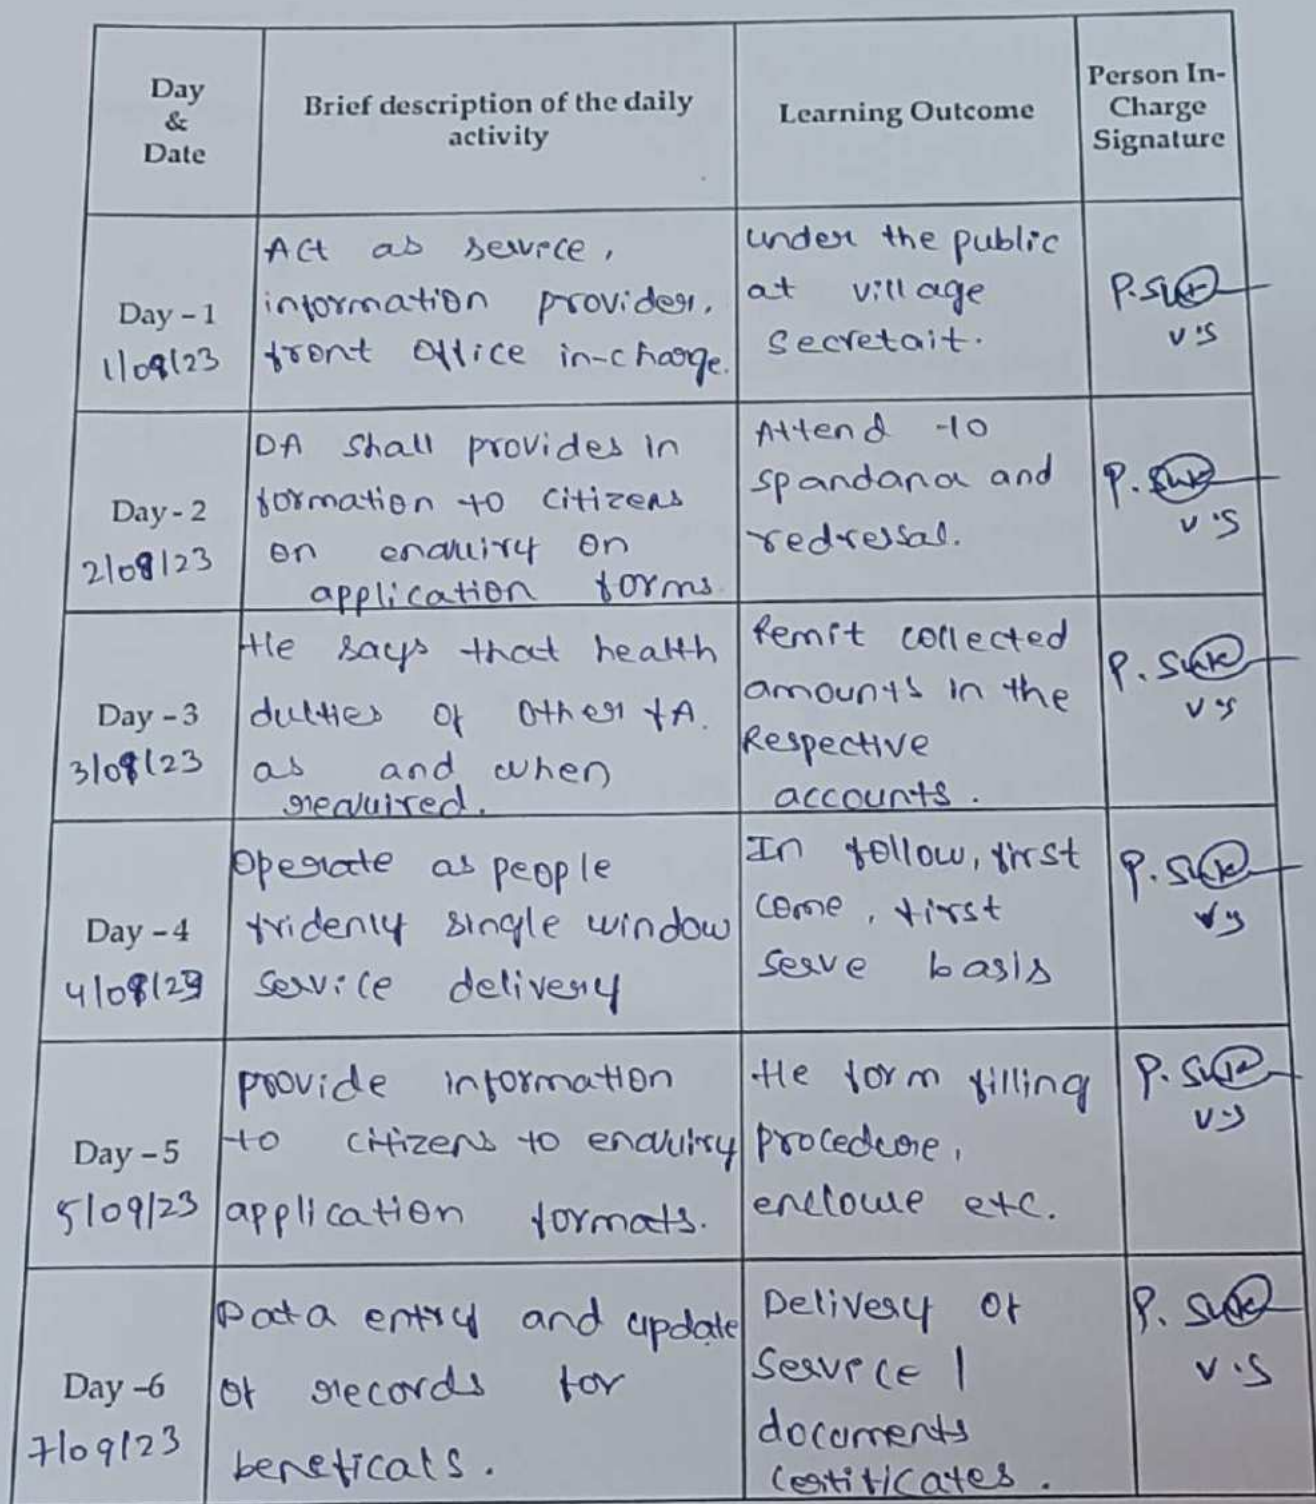 Day
&
Date
Brief description of the daily
activity
Learning Outcome
Person In-
Charge
Signature
Day - 1
1/09/23
Act as service,
information provider,
front office in-charge.
under the public
at village
secretait.
V.S
Day - 2
2/09/23
DA shall provides in
formation to citizens
on enquiry on
application forms
Attend to
spandana and
redressal.
V.S
Day - 3
3/09/23
He says that health
dulties of other FA.
as and when
required.
Remit collected
amounts in the
Respective
accounts.
V.S
Day - 4
4/09/23
Operate as people
fridenly single window
service delivery
In follow, first
come, first
serve basis
V.S
Day - 5
5/09/23
provide information
to citizens to enquiry
application formats.
He form filling
procedure,
etc.
V.S
Day -6
7/09/23
Data entry and update
of records for
beneficals.
Delivery of
Service |
documents
certificates.
V.S